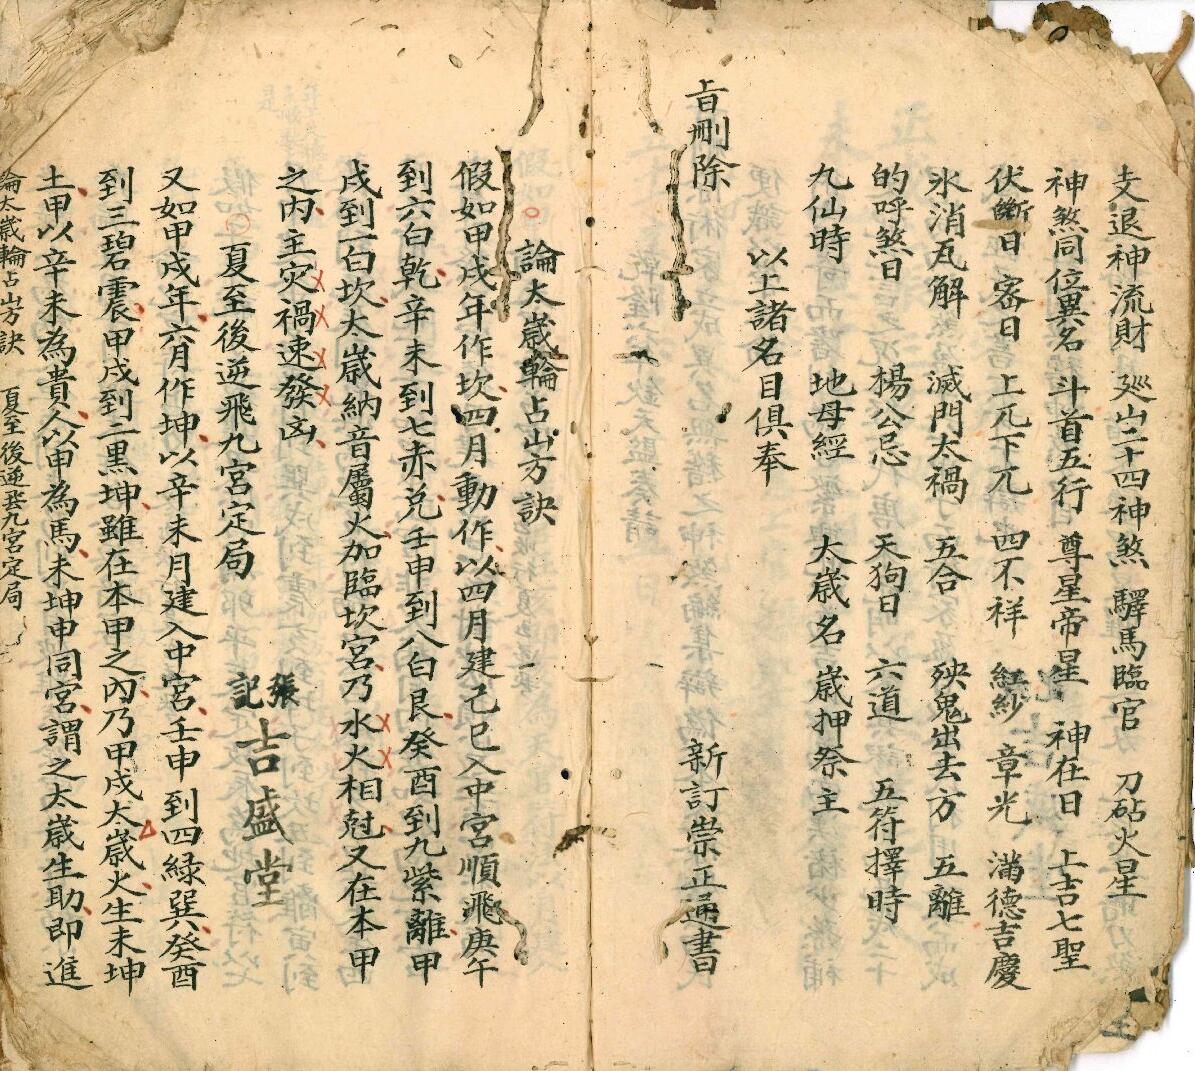 支退神流財　廵山二十四神煞　驛馬臨官　刀砧火星
神煞同位異名　斗首五行　尊星帝星　神在日　上吉七聖
伏斷日　密日　上兀下兀　四不祥　紅紗　章光　滿德吉慶
氷消瓦解　滅門太禍　五合　殃鬼出去方　五離
的呼煞日　楊公忌　天狗日　六道　五符擇時
九仙時　地母經　太歲名　歲押祭主
以上諸名目俱奉
旨刪除　新訂崇正通書
論太歲輪占山方訣
假如甲戌年作坎四月動作以四月建己巳入中宮順飛庚午
到六白乾辛未到七赤兌壬申到八白艮癸酉到九紫離甲
戌到一白坎太歲納音屬火加臨坎宮乃水火相尅又在本甲
之內主灾禍速發凶
夏至後逆飛九宮定局　張記吉盛堂
又如甲戌年六月作坤以辛未月建入中宮壬申到四綠巽癸酉
到三碧震甲戌到二黑坤雖在本甲之內乃甲戌太歲火生未坤
土甲以辛未為貴人以申為馬未坤申同宮謂之太歲生助即進
論太歲輪占山方訣　夏至後逆飛九宮定局